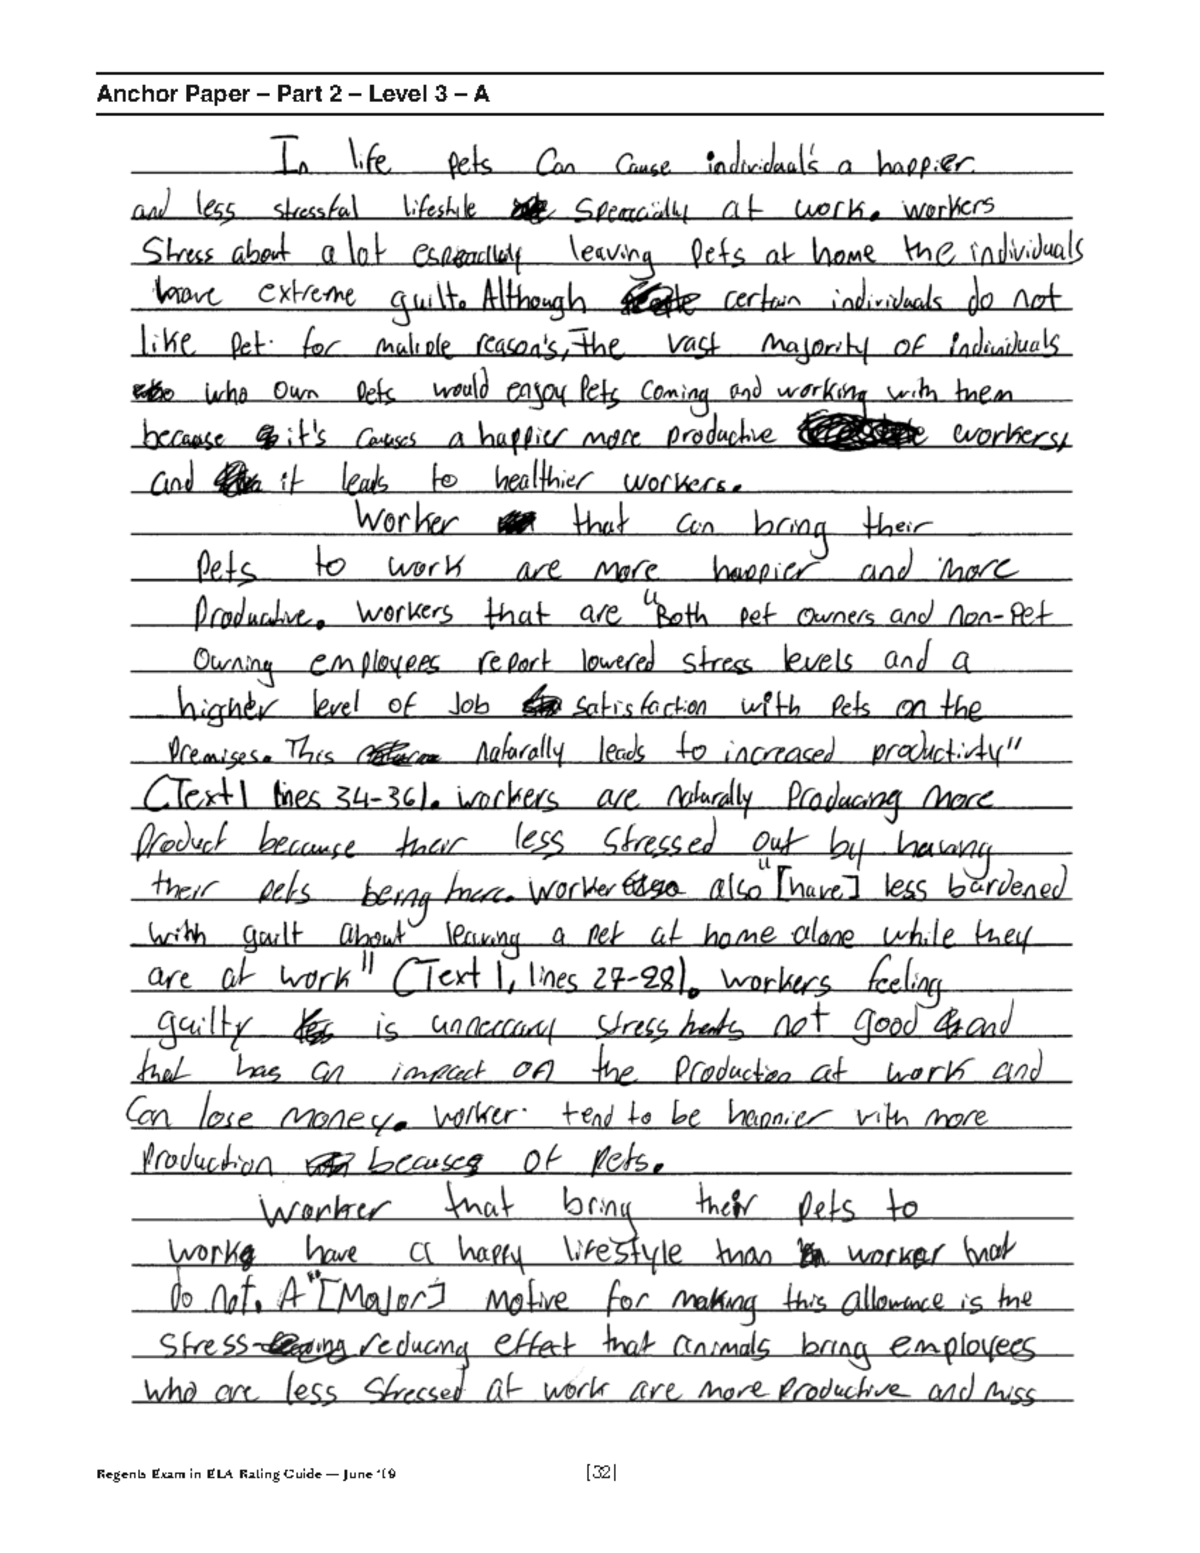 Anchor Paper – Part 2 – Level 3 – A
In life pets can cause individual's a happier
and less stressful lifestile at work. workers
Stress about a lot leaving Pets at home the individuals
have extreme guilt. Although certain individuals do not
like pet for reason's, The vast majority of individuals
who own pets would enjoy Pets coming and working with them
because it's causes a happier more productive workers,
and it leads to healthier workers.
Worker that can bring their
Pets to work are more happier and more
Productive. Workers that are "Both pet owners and non-Pet
Owning employees report lowered stress levels and a
higher level of Job satisfaction with Pets on the
Premises. This naturally leads to increased productivity"
(Text 1 lines 34-36). workers are naturally Producing more
Product because their less stressed out by having
their pets being there. Worker also "[have] less burdened
with guilt about leaving a pet at home alone while they
are at work" (Text 1, lines 27-28). workers feeling
guilty is stress not good and
that has an impact on the Production at work and
Can lose money. Worker tend to be happier with more
Production of Pets.
Worker that bring their pets to
work have a happy lifestyle than worker that
do not. A "[Major] motive for making this allowance is the
stress-reducing effect that animals bring employees
who are less Stressed at work are more Productive and miss
Regents Exam in ELA Rating Guide — June '19
[32]